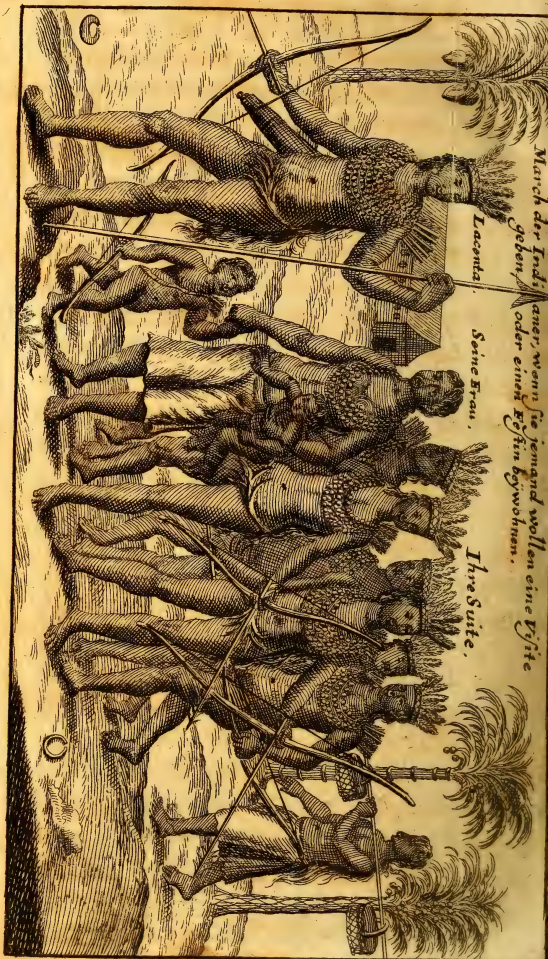 March der Indianer, wenn Sie jemand wollen eine Visite
geben, oder einen Festin beywohnen.
Lacenta. Seine Frau. Ihre Suite.
C